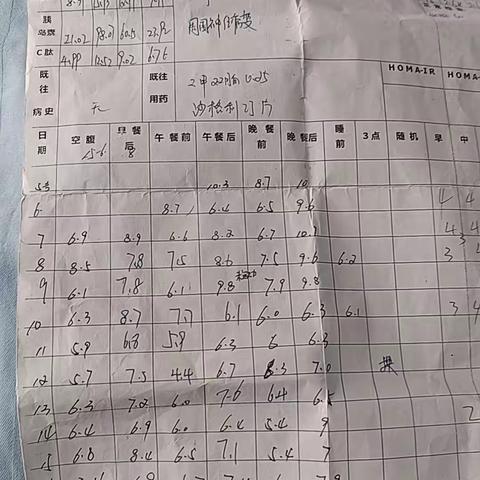 胰岛素 21.02 98.07 60.5 23.92 周围神经病变
C肽 4.99 12.52 9.02 6.76
既往病史 无 既往用药 二甲双胍 0.25
沙格利汀片
HOMA-IR HOMA-
日期 空腹 早餐后 午餐前 午餐后 晚餐前 晚餐后 睡前 3点 随机 早 中
15.6 8
5号 10.3 8.7 10
6 8.7 6.4 6.5 9.6 4 4
7 6.9 8.9 6.6 8.2 6.7 10.7 4 4
3
8 8.5 7.8 7.5 8.6 7.5 9.6 6.2 3 4
9 6.1 7.8 6.1 9.8 7.9 9.8
10 6.3 8.7 7.7 6.1 6.0 6.3 6.1 3 4
11 5.9 6.8 5.9 6.3 6 6.3
12 5.7 7.5 4.4 6.7 6.3 7.0
13 6.3 7.2 6.0 7.6 6.4 6.5
14 6.4 6.9 6.0 6.4 5.4 9 2
15 6.8 8.4 6.5 7.1 5.4 7